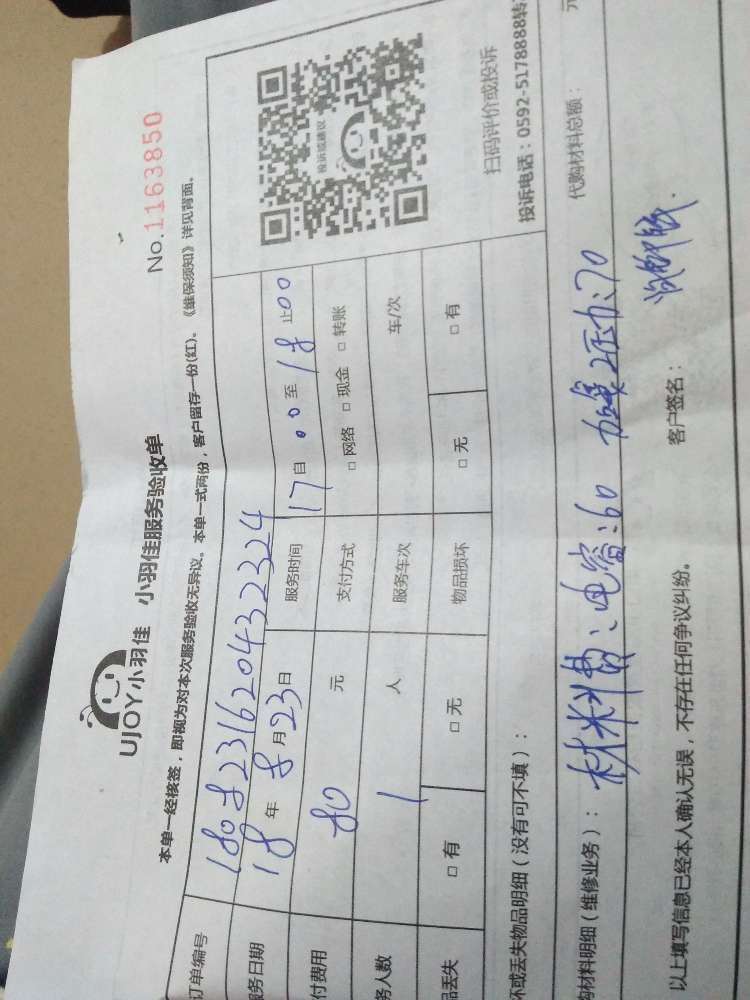 UJOY小羽佳 小羽佳服务验收单
No.1163850
本单一经核签，即视为对本次服务验收无异议。本单一式两份，客户留存一份(红)。《维保须知》详见背面。
订单编号 1808231620432324
服务日期 18年8月23日 服务时间 17自00至18止00
付费用 80元 支付方式 □网络 □现金 □转账
务人数 1人 服务车次 车/次
品丢失 □有 □无 物品损坏 □无 □有
投诉或建议
扫码评价或投诉
投诉电话：0592-5178888转
坏或丢失物品明细（没有可不填）：
购材料明细（维修业务）：材料费：电容：60 加氟2压力：70 代购材料总额： 元
以上填写信息已经本人确认无误，不存在任何争议纠纷。 客户签名：